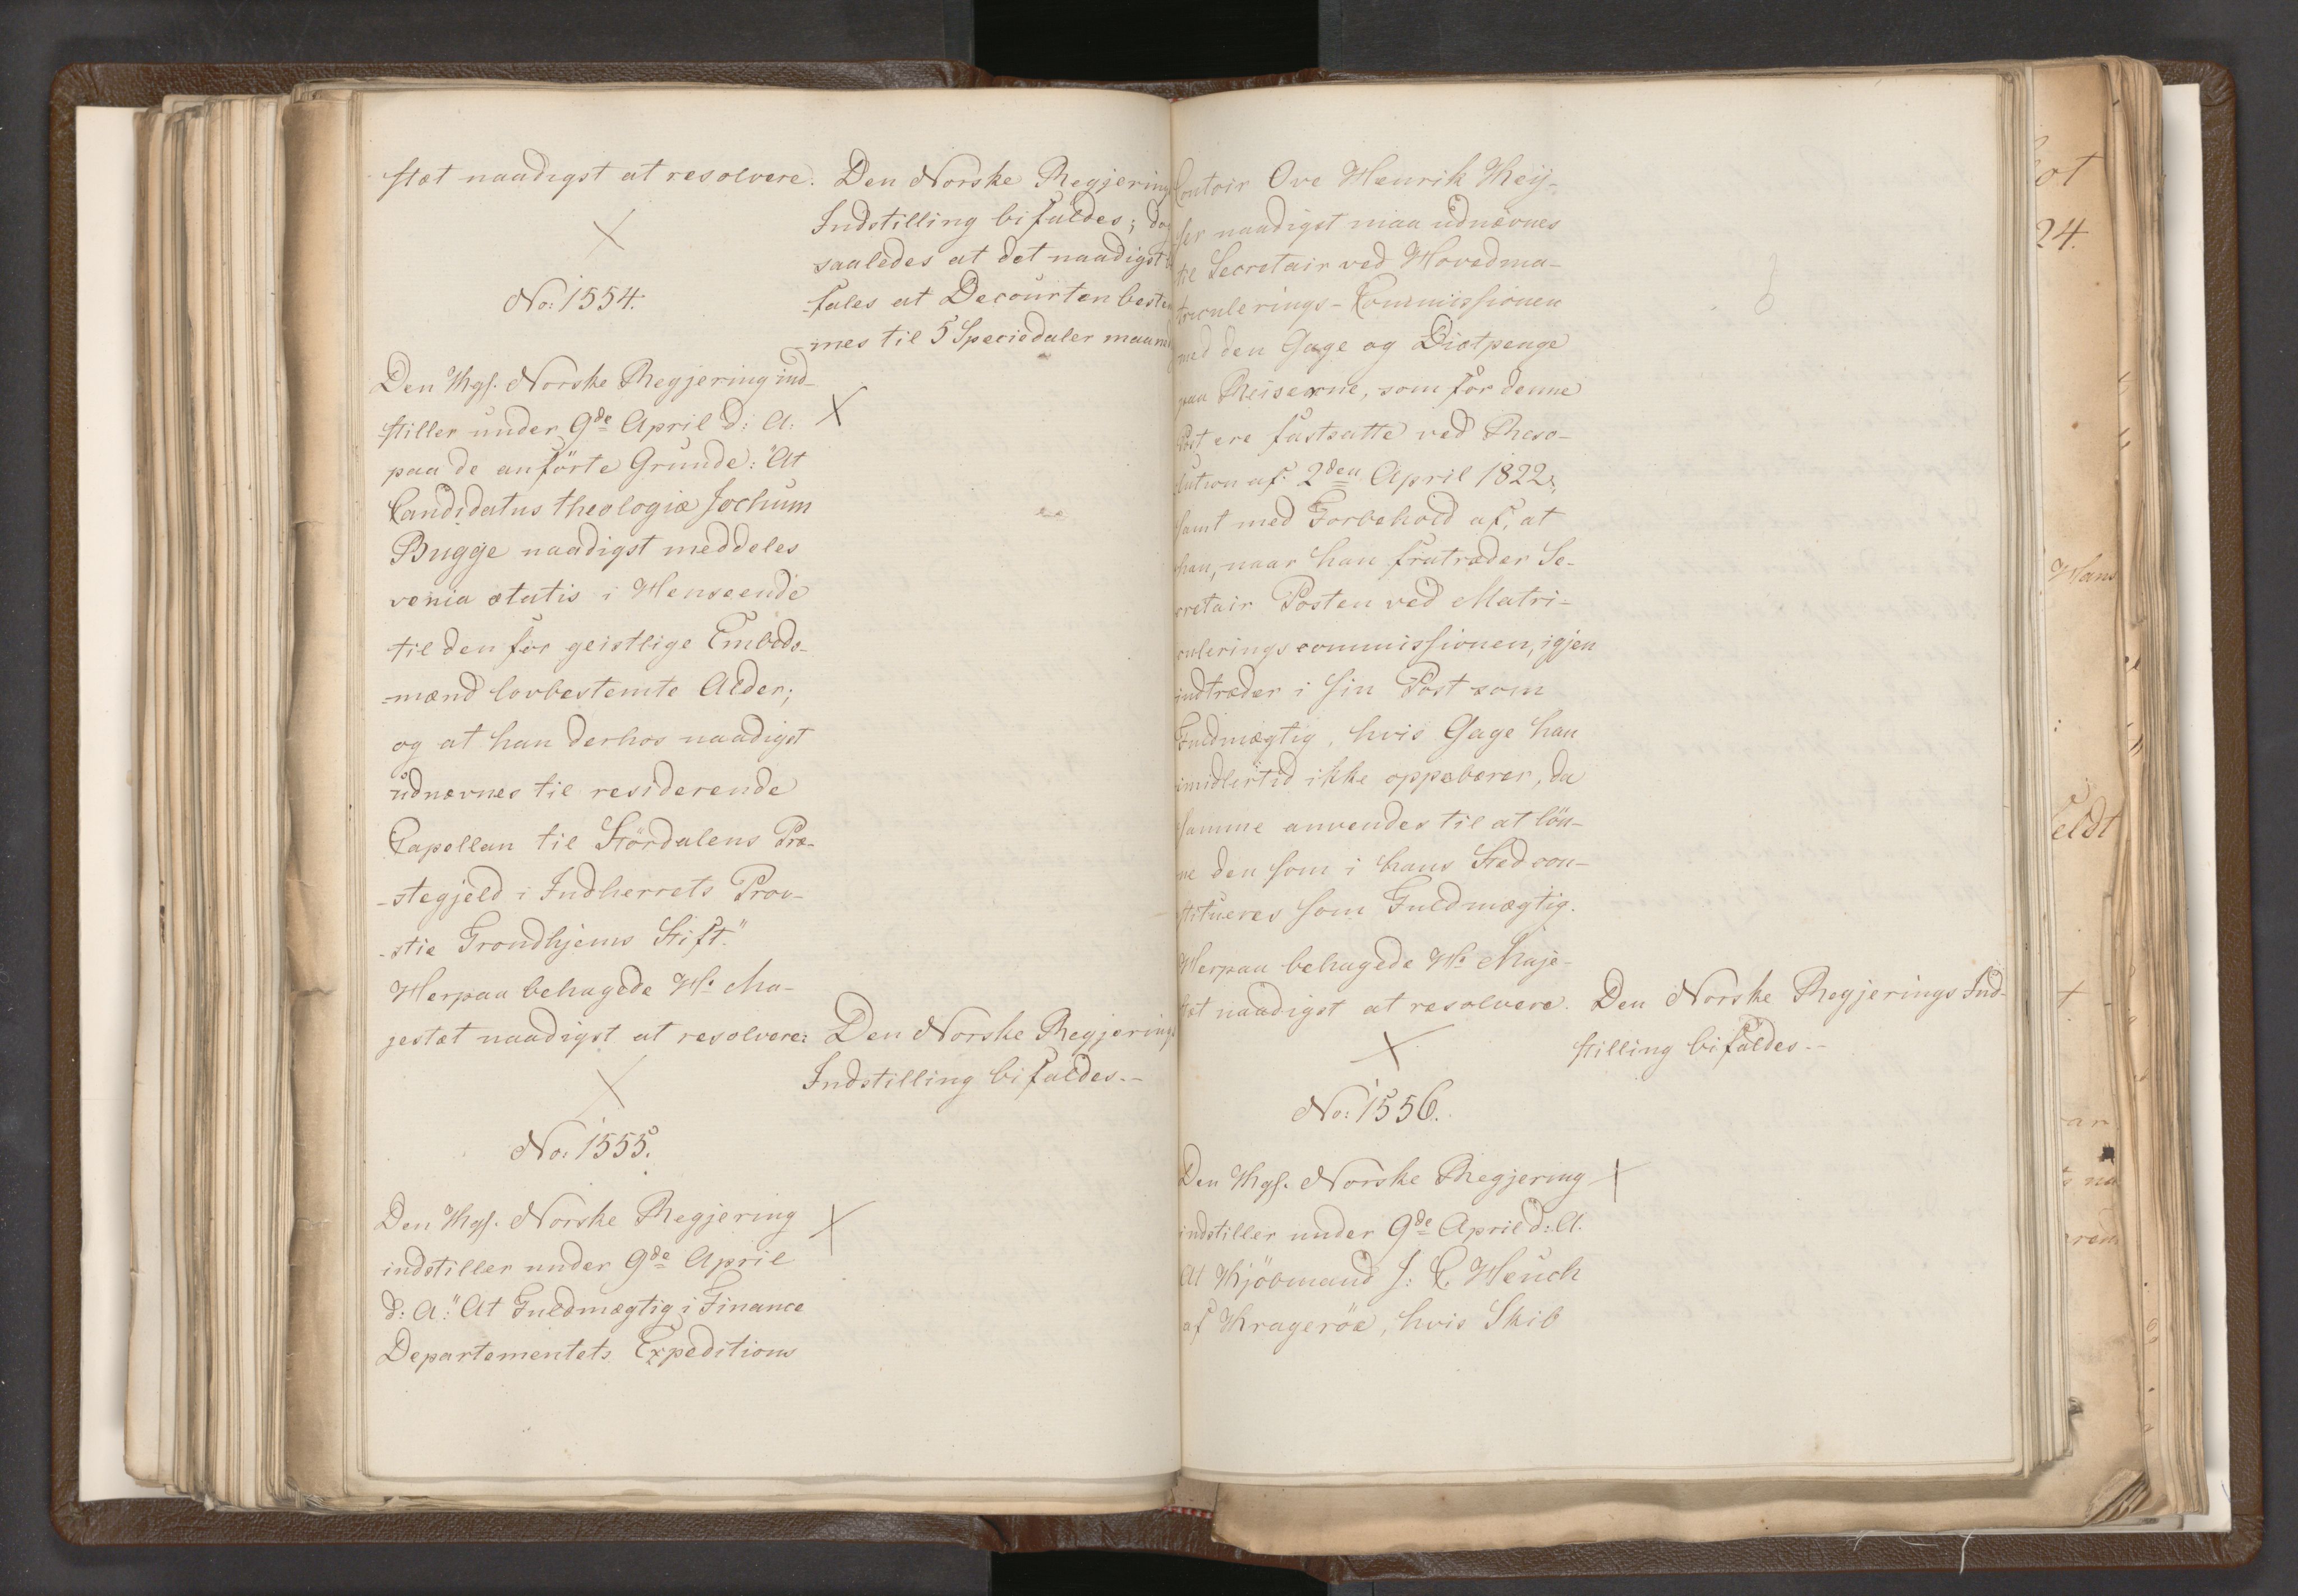 stæt naadigst at resolvere.
Den Norske Regjering
Indstilling bifaldes; dog
saaledes at det naadigst
fales at Decourten bestem
mes til 5 Speciedaler maaned
No: 1554.
Den Kgl. Norske Regjering ind-
stiller under 9de April d: A:
paa de anförte Grunde: "At
Candidatus theologiæ Jochum
Bugge naadigst meddeles
venia ætatis i Henseende
til den for geistlige Embeds-
-mænd lovbestemte Alder;
og at han derhos naadigst
udnævnes til residerende
Capellan til Stördalens Præ-
-stegjeld i Indherrets Prov-
-stie Trondhjems Stift."
Herpaa behagede Hs Ma-
jestæt naadigst at resolvere:
Den Norske Regjerings
Indstilling bifaldes.-
No: 1555.
Den Kgl. Norske Regjering
indstiller under 9de April
d: A: "At Fuldmægtig i Finance
Departementets Expeditions
Contoir Ove Henrik Key-
ser naadigst maa udnævnes
til Secretair ved Hovedma-
triculerings-Commissionen
med den Gage og Diætpenge
paa Reiserne, som for denne
Post ere fastsatte ved Reso-
lution af 2den April 1822,
samt med Forbehold af, at
han, naar han fratræder Se-
cretair Posten ved Matri-
culeringscommissionen, igjen
indtræder i sin Post som
Fuldmægtig, hvis Gage han
imidlertid ikke oppebærer, da
samme anvendes til at lön-
ne den som i hans Sted con-
stitueres som Fuldmægtig.
Herpaa behagede Hs Maje-
stæt naadigst at resolvere.
Den Norske Regjerings Ind-
stilling bifaldes.-
No: 1556.
Den Kgl. Norske Regjering
indstiller under 9de April d: A.
At Kjöbmand J: C. Heuch
af Krageröe, hvis Skib
24.
Hans
eldt